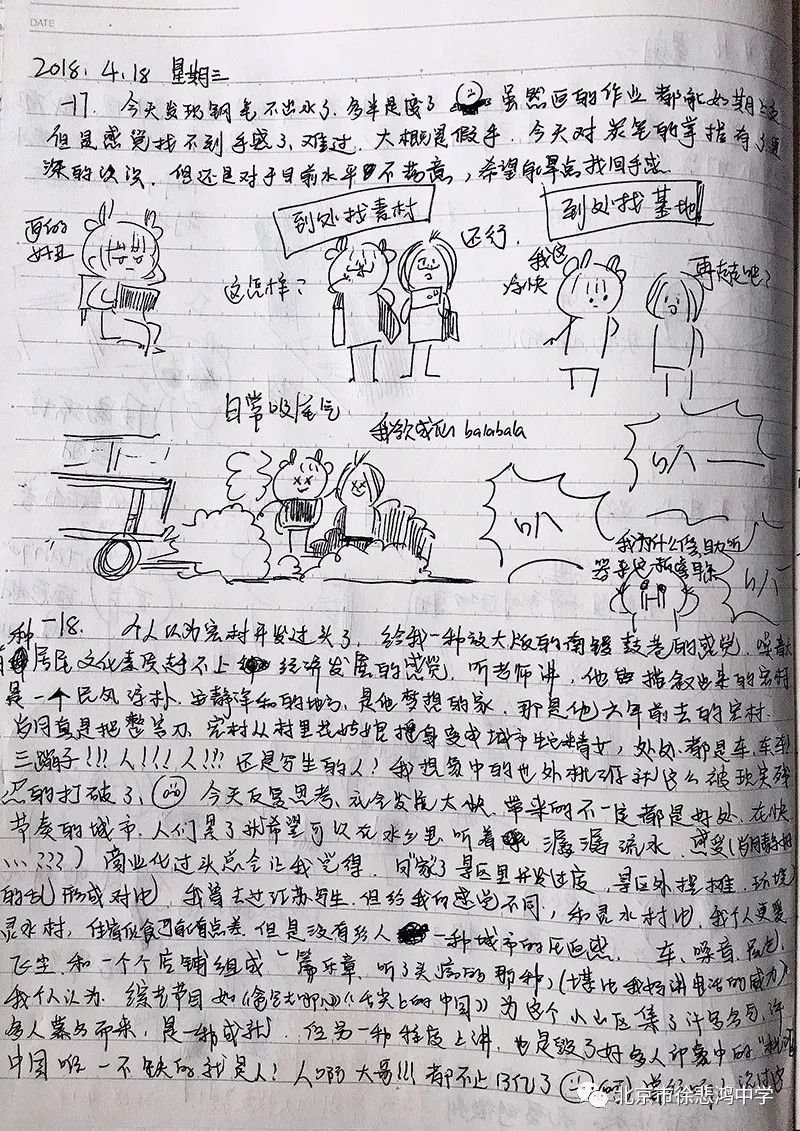 DATE
2018.4.18 星期三
-17. 今天发现钢笔不出水了,多半是废了 虽然画的作业都能如期上交
但是感觉找不到手感了,难过.大概是假手.今天对炭笔的掌握有了更
深的次次.但还是对于目前水平不满意,希望能早点找回手感.
画的
好丑
到处找素材
这怎样?
还行.
到处找墓地!
我这
凉快
再走走吧?
日常吸尾气
我欲成仙 balabala
叭
叭——
我为什么
叭
种-18. 个人以为宏村开发过头了,给我一种放大版的南锣鼓巷的感觉,噪音
居民文化素质赶不上经济发展的感觉.听老师讲,他曾描叙出来的宏村
是一个民风淳朴.安静泽和的地方,是他梦想的家,那是他六年前去的宏村.
岁月真是把整容刀.宏村从村里花姑娘摇身变成城市蛇精女,处处都是车,车车!
三蹦子!!!人!!!人!!!还是写生的人!我想象中的世外桃源就这么被现实残
忍的打破了, 今天反复思考,社会发展太快.带来的不一定都是好处.在快
节奏的城市.人们累了就希望可以在水乡里听着潺潺流水.感受(岁月静好
...???)商业化过头总会让我觉得. 景区里开发过度,景区外摆摊.环境
的乱形成对比,我曾去过江苏写生.但给我的感觉不同,和灵水村比,我个人更爱
灵水村,住宿饮食可能有点差.但是没有给人一种城市的压迫感. 车、噪音、
飞尘.和一个个店铺组成一篇乐章.听了头疼的那种,(堪比我妈讲电话的威力)
我个人认为.综艺节目如《爸爸去哪儿》《舌尖上的中国》为这个小山区集了许多名号,许
多人慕名而来,是一种成就.但另一种程度上讲.也是毁了好多人印象中的"桃源"
中国啥一不缺的就是人!人啊大哥!!!都不止13亿了
北京市徐悲鸿中学